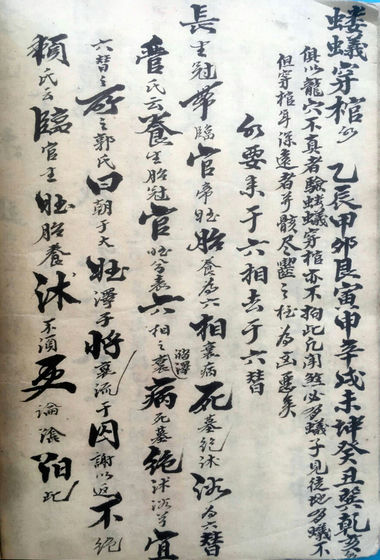 蝼蟻穿棺例 乙辰甲卯艮寅申辛戌未坤癸丑巽乾
俱以龍穴不真者驗蝼蟻穿棺亦不拘此凡開煞必多蟻子見徒地多蟻不
但穿棺年深遠者并骸尽蠶之 為
水要来于六相去于六替
長生冠帶臨官帝旺胎養為六相衰病死墓絶沐浴為六替
曹氏云養生胎冠官旺 六相之衰病死墓絶沐浴 宜
六替之所之郭氏曰朝于大旺澤于將衰流于囚謝以返不絶
賴氏云臨官生旺胎養沐不須更論陰陽此